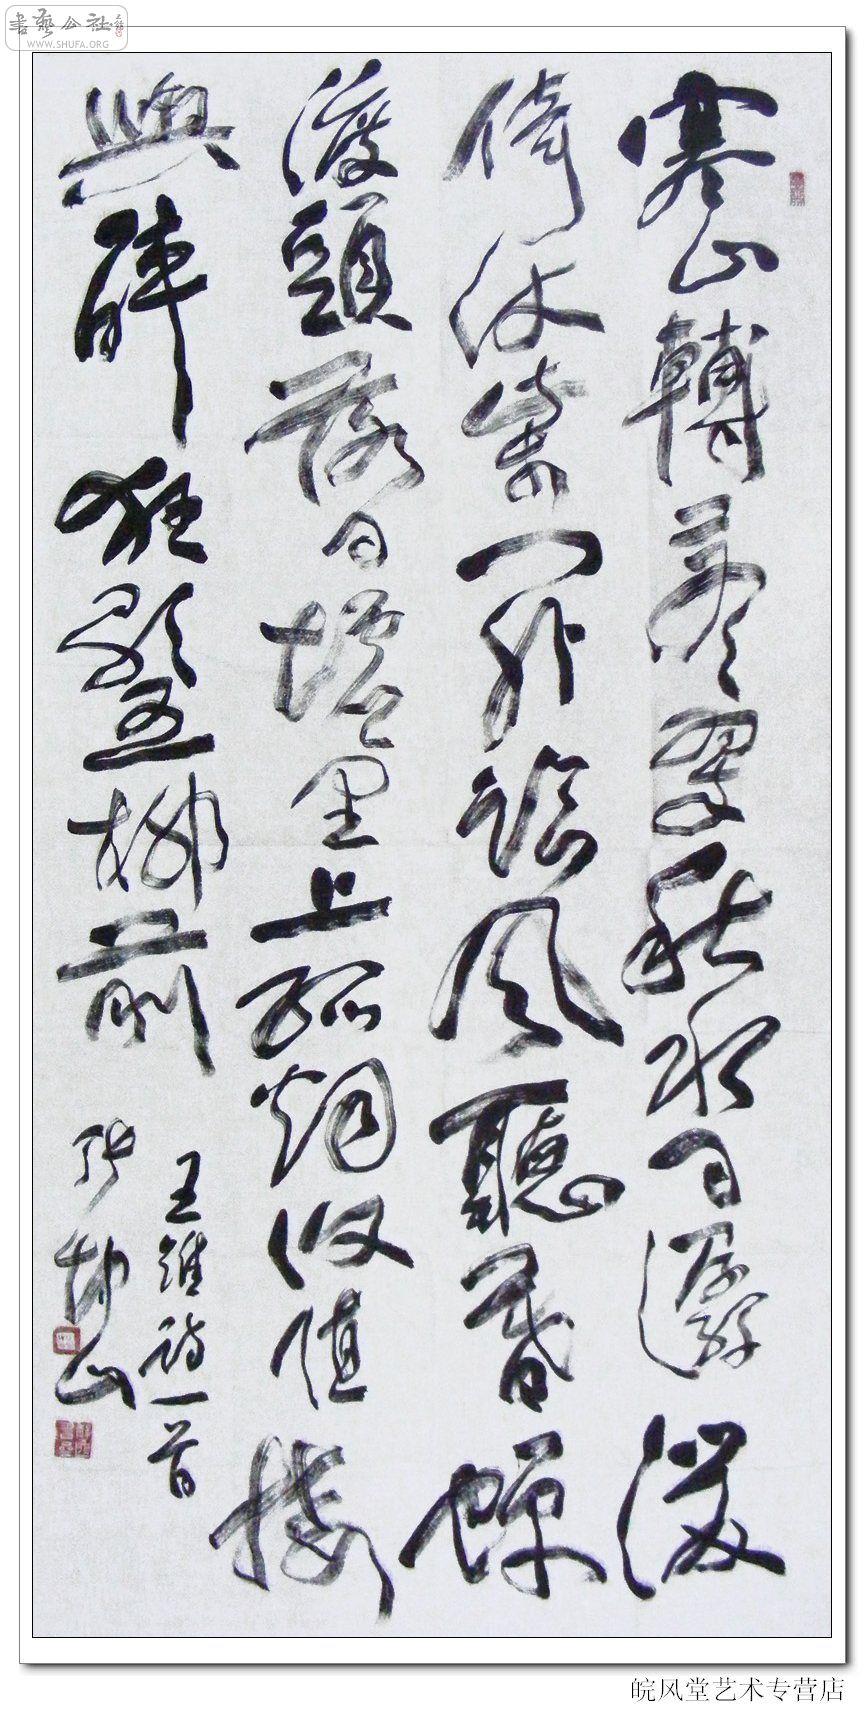 書藝公社
WWW.SHUFA.ORG
寒山轉蒼翠秋水日潺湲
倚杖柴門外臨風聽暮蟬
渡頭落日墟里上孤烟復值接
與醉狂歌五柳前
王維詩一首
張坤山
皖风堂艺术专营店